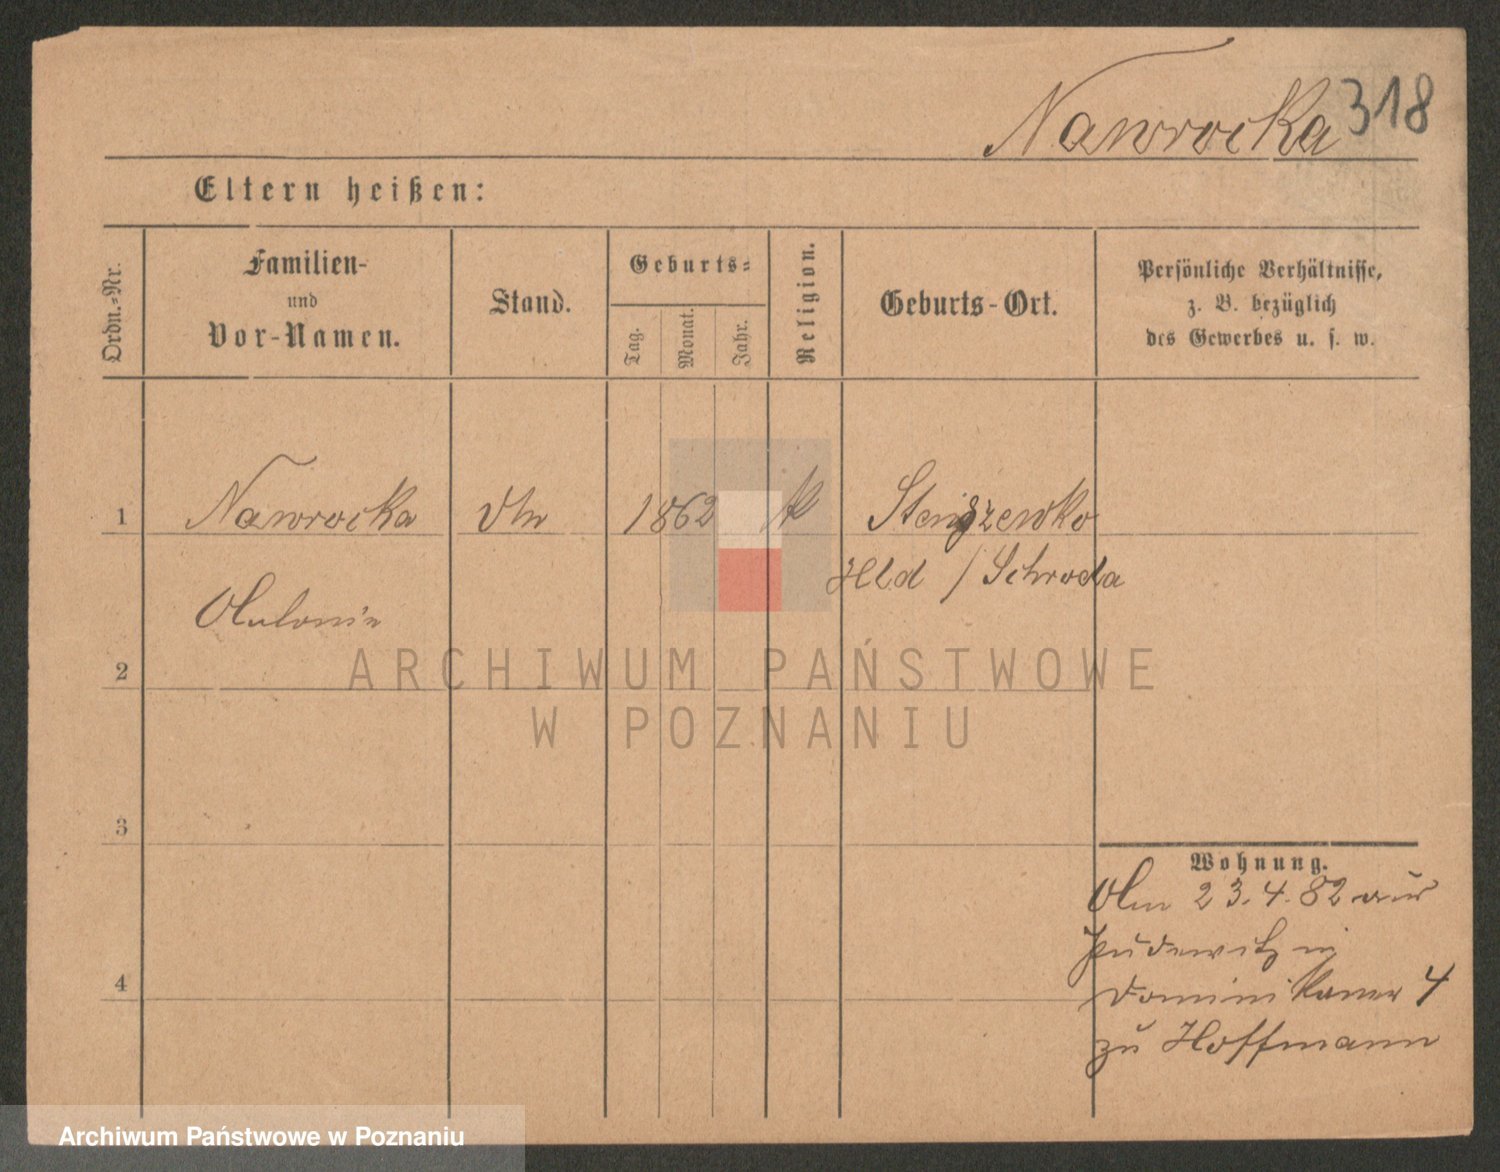 Nawrocka 318
Eltern heißen:
Ordn.-Nr.
Familien-
und
Vor-Namen.
Stand.
Geburts-
Tag.
Monat.
Jahr.
Religion.
Geburts-Ort.
Persönliche Verhältnisse,
z. B. bezüglich
des Gewerbes u. s. w.
1
Nawrocka
1862
k
Stenszewko
Hld / Schroda
Antonie
2
3
4
Wohnung.
Am 23.4.82 aus
Pudewitz in
Dominikaner 4
zu Hoffmann
ARCHIWUM PAŃSTWOWE
W POZNANIU
Archiwum Państwowe w Poznaniu